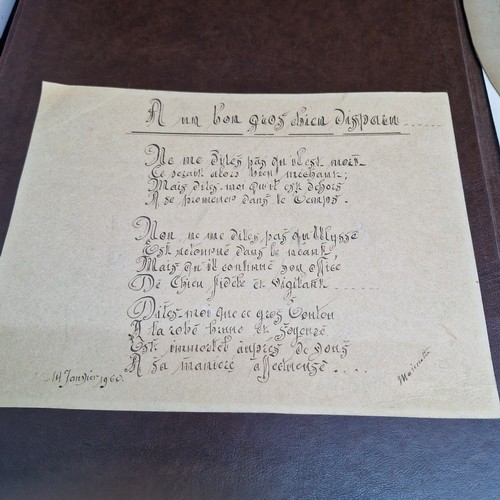 A un bon gros chien disparu......
Ne me dites pas qu'il est mort
Ce serait alors bien méchant;
Mais dites-moi qu'il est dehors
A se promener dans le Temps.
Non ne me dites pas qu'Ulysse
Est retourné dans le néant,
Mais qu'il continue son office
De Chien fidèle et vigilant......
Dites-moi que ce gros Toutou
A la robe brune et
Est immortel auprès de vous
A sa manière affectueuse....
Janvier 1960.